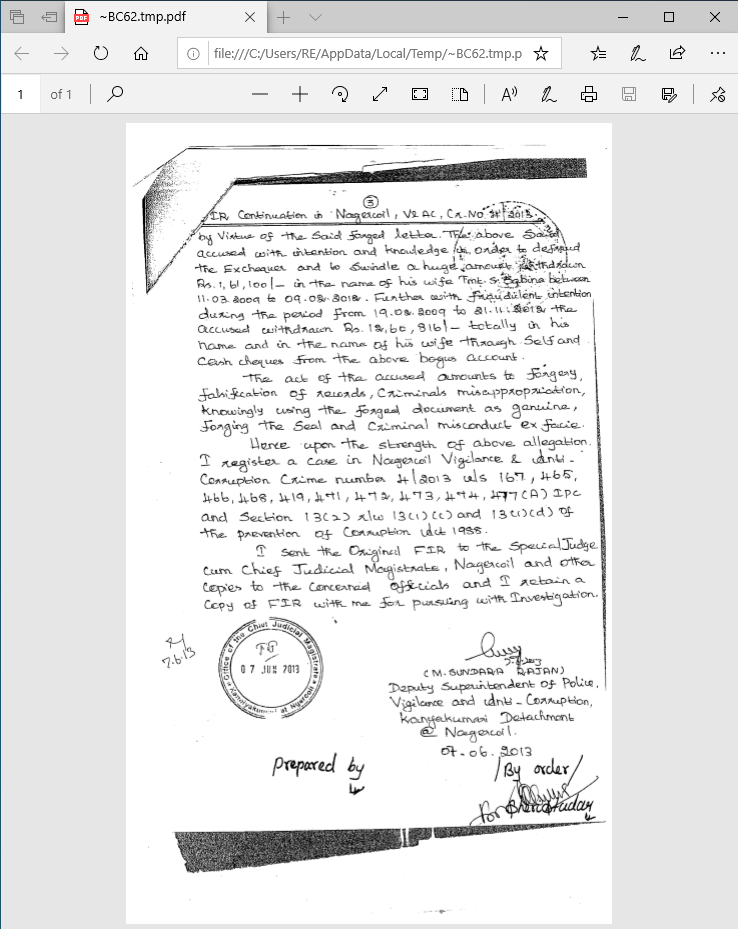 ~BC62.tmp.pdf
file:///C:/Users/RE/AppData/Local/Temp/~BC62.tmp.p
1 of 1
3
FIR Continuation in Nagercoil, V&AC, Cr.No. 4/2013.
by Virtue of the Said forged letter. The above Said
accused with intention and knowledge in order to defraud
the Exchequer and to Swindle a huge amount withdrawn
Rs. 1,61,100/- in the name of his wife Tmt. S. Sabina between
11.03.2009 to 09.02.2012. Further with fraudulent intention
during the period from 19.02.2009 to 21.11.2012 the
accused withdrawn Rs. 12,60,816/- totally in his
name and in the name of his wife through Self and
Cash cheques from the above bogus account.
The act of the accused amounts to forgery,
falsification of records, Criminals misappropriation,
knowingly using the forged document as genuine,
forging the Seal and Criminal misconduct ex facie.
Hence upon the strength of above allegation.
I register a case in Nagercoil Vigilance & Anti-
Corruption Crime number 4/2013 u/s 167, 465,
466, 468, 419, 471, 472, 473, 474, 477(A) IPC
and Section 13(2) r/w 13(1)(c) and 13(1)(d) of
the prevention of Corruption Act 1988.
I sent the Original FIR to the Special Judge
cum Chief Judicial Magistrate, Nagercoil and other
Copies to the Concerned officials and I retain a
Copy of FIR with me for pursuing with Investigation.
7.6.13
Office of the Chief Judicial Magistrate
07 JUN 2013
Kanniyakumari at Nagercoil
7.6.2013
(M. SUNDARA RAJAN)
Deputy Superintendent of Police,
Vigilance and Anti-Corruption,
Kanyakumari Detachment
@ Nagercoil.
07.06.2013
Prepared by
/By order/
for